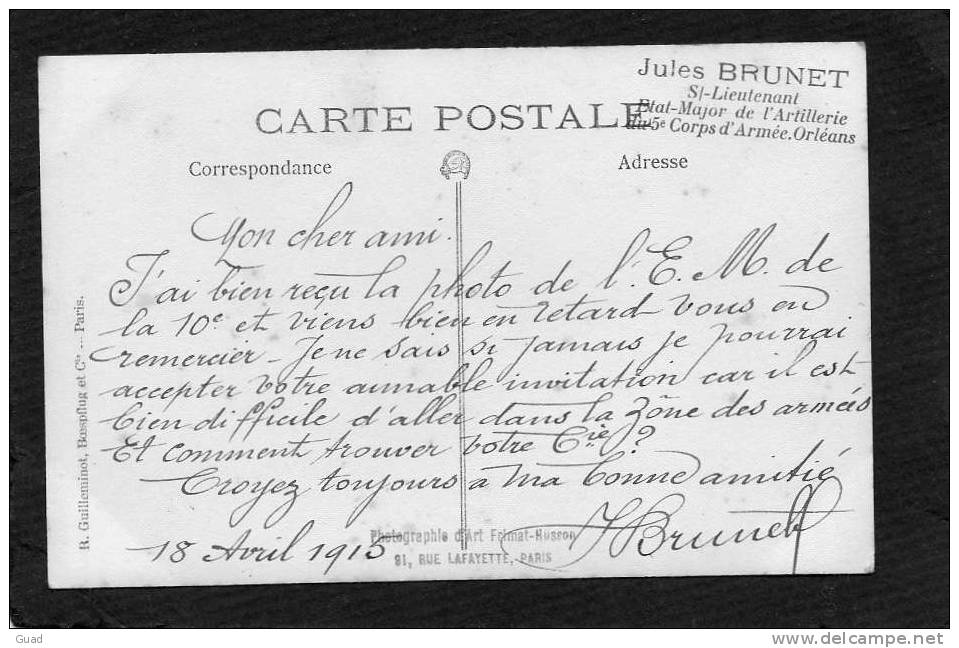 Jules BRUNET
S/-Lieutenant
Etat-Major de l'Artillerie
du 5e Corps d'Armée. Orléans
CARTE POSTALE
Correspondance
Adresse
Mon cher ami.
J'ai bien reçu la photo de l'E. M. de
la 10e et viens bien en retard vous en
remercier - Je ne sais si jamais je pourrai
accepter votre aimable invitation car il est
bien difficile d'aller dans la zône des armées
Et comment trouver votre Cie ?
Croyez toujours à ma bonne amitié
JBrunet
18 Avril 1915
Photographie d'Art
91, RUE LAFAYETTE, PARIS
R. Guilleminot, Bœspflug et Cie — Paris.
Guad
www.delcampe.net